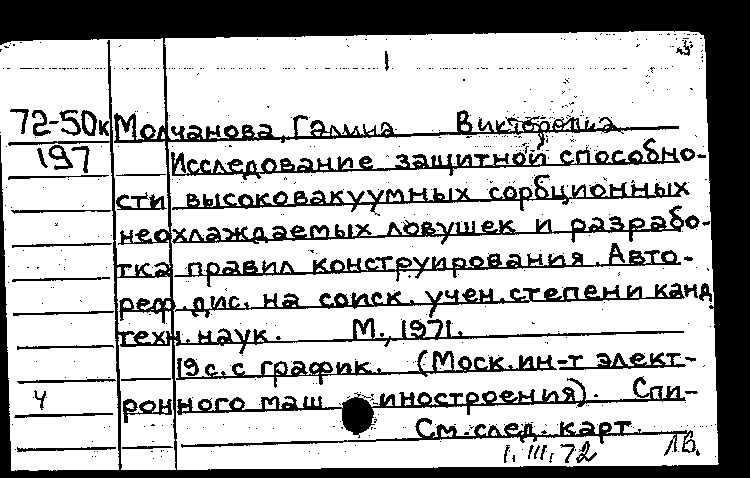 72-50к Молчанова, Галина Викторовна
197 Исследование защитной способно-
сти высоковакуумных сорбционных
неохлаждаемых ловушек и разрабо-
тка правил конструирования. Авто-
реф.дис. на соиск. учен.степени канд
техн.наук. М., 1971.
19с.с график. (Моск.ин-т элект-
ч ронного маш иностроения). Спи-
См.след. карт.
1.III.72 ЛВ.